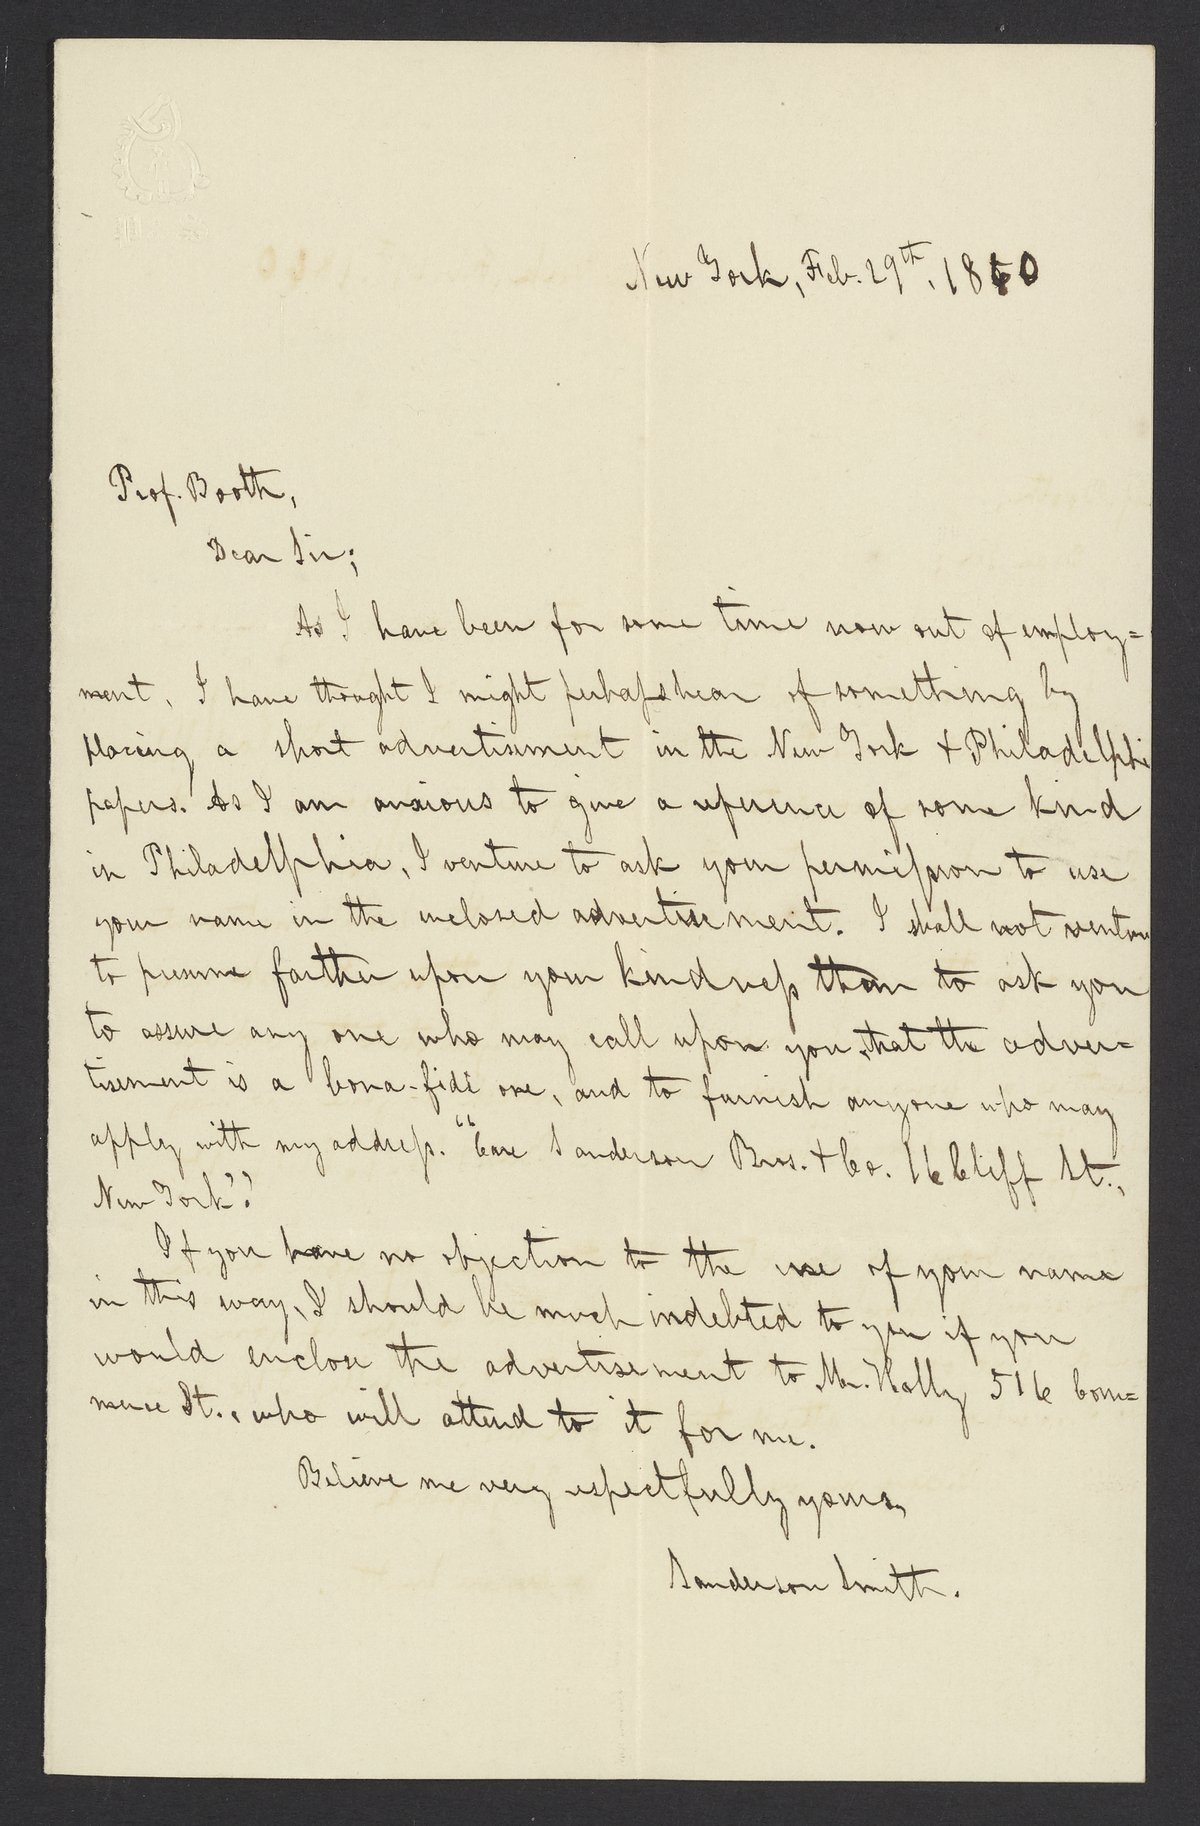 New York, Feb. 29th, 1860
Prof. Booth,
Dear Sir;
As I have been for some time now out of employ=
ment, I have thought I might perhaps hear of something by
placing a short advertisement in the New York & Philadelphia
papers. As I am anxious to give a reference of some kind
in Philadelphia, I venture to ask your permission to use
your name in the inclosed advertisement. I shall not venture
to presume farther upon your kindness than to ask you
to assure any one who may call upon you, that the adver=
tisement is a bona-fide one, and to furnish anyone who may
apply with my address. "Care Sanderson Bros. & Co. 16 Cliff St.,
New York".
If you have no objection to the use of your name
in this way, I should be much indebted to you if you
would enclose the advertisement to Mr. Holly 516 Com=
merce St., who will attend to it for me.
Believe me very respectfully yours,
Sanderson Smith.